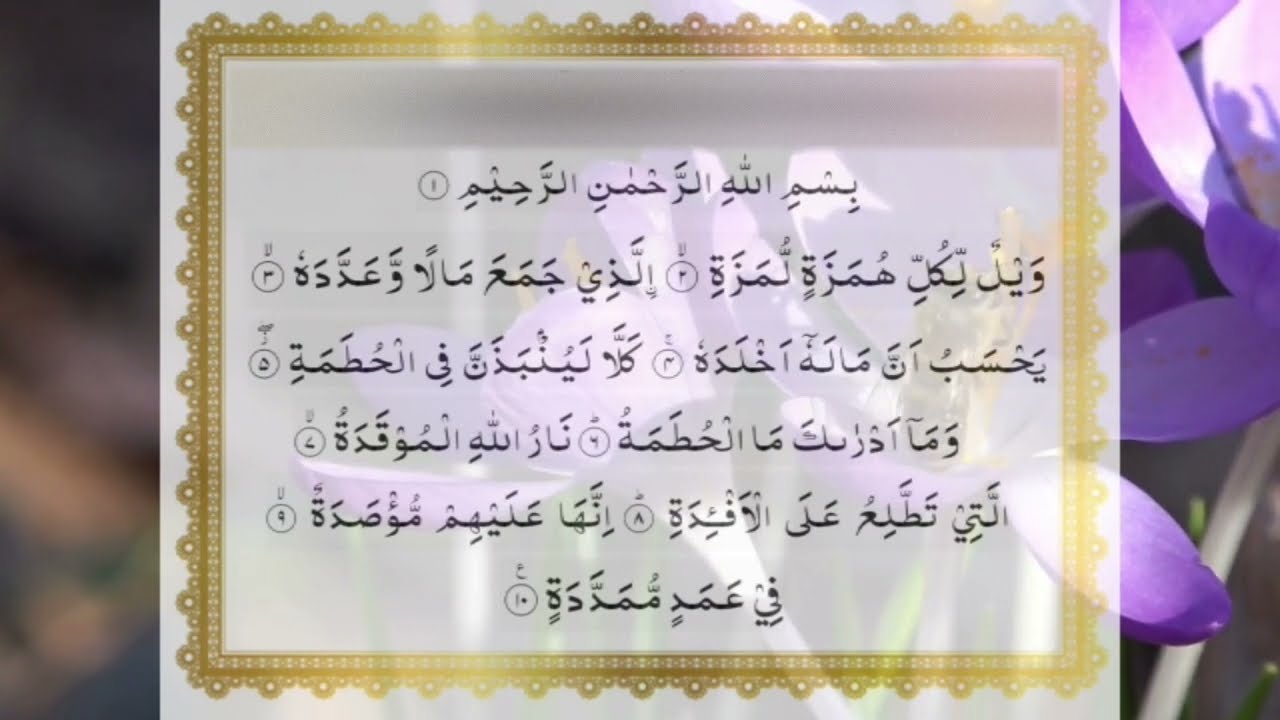 بِسْمِ اللّٰهِ الرَّحْمٰنِ الرَّحِيْمِ ۝١
وَيْلٌ لِّكُلِّ هُمَزَةٍ لُّمَزَةٍۙ ۝٢ ۨالَّذِيْ جَمَعَ مَالًا وَّعَدَّدَهٗۙ ۝٣
يَحْسَبُ اَنَّ مَالَهٗٓ اَخْلَدَهٗۚ ۝٤ كَلَّا لَيُنْۢبَذَنَّ فِى الْحُطَمَةِۖ ۝٥
وَمَآ اَدْرٰىكَ مَا الْحُطَمَةُؕ ۝٦ نَارُ اللّٰهِ الْمُوْقَدَةُۙ ۝٧
الَّتِيْ تَطَّلِعُ عَلَى الْاَفْـِٕدَةِؕ ۝٨ اِنَّهَا عَلَيْهِمْ مُّؤْصَدَةٌۙ ۝٩
فِيْ عَمَدٍ مُّمَدَّدَةٍ ࣖ ۝١٠